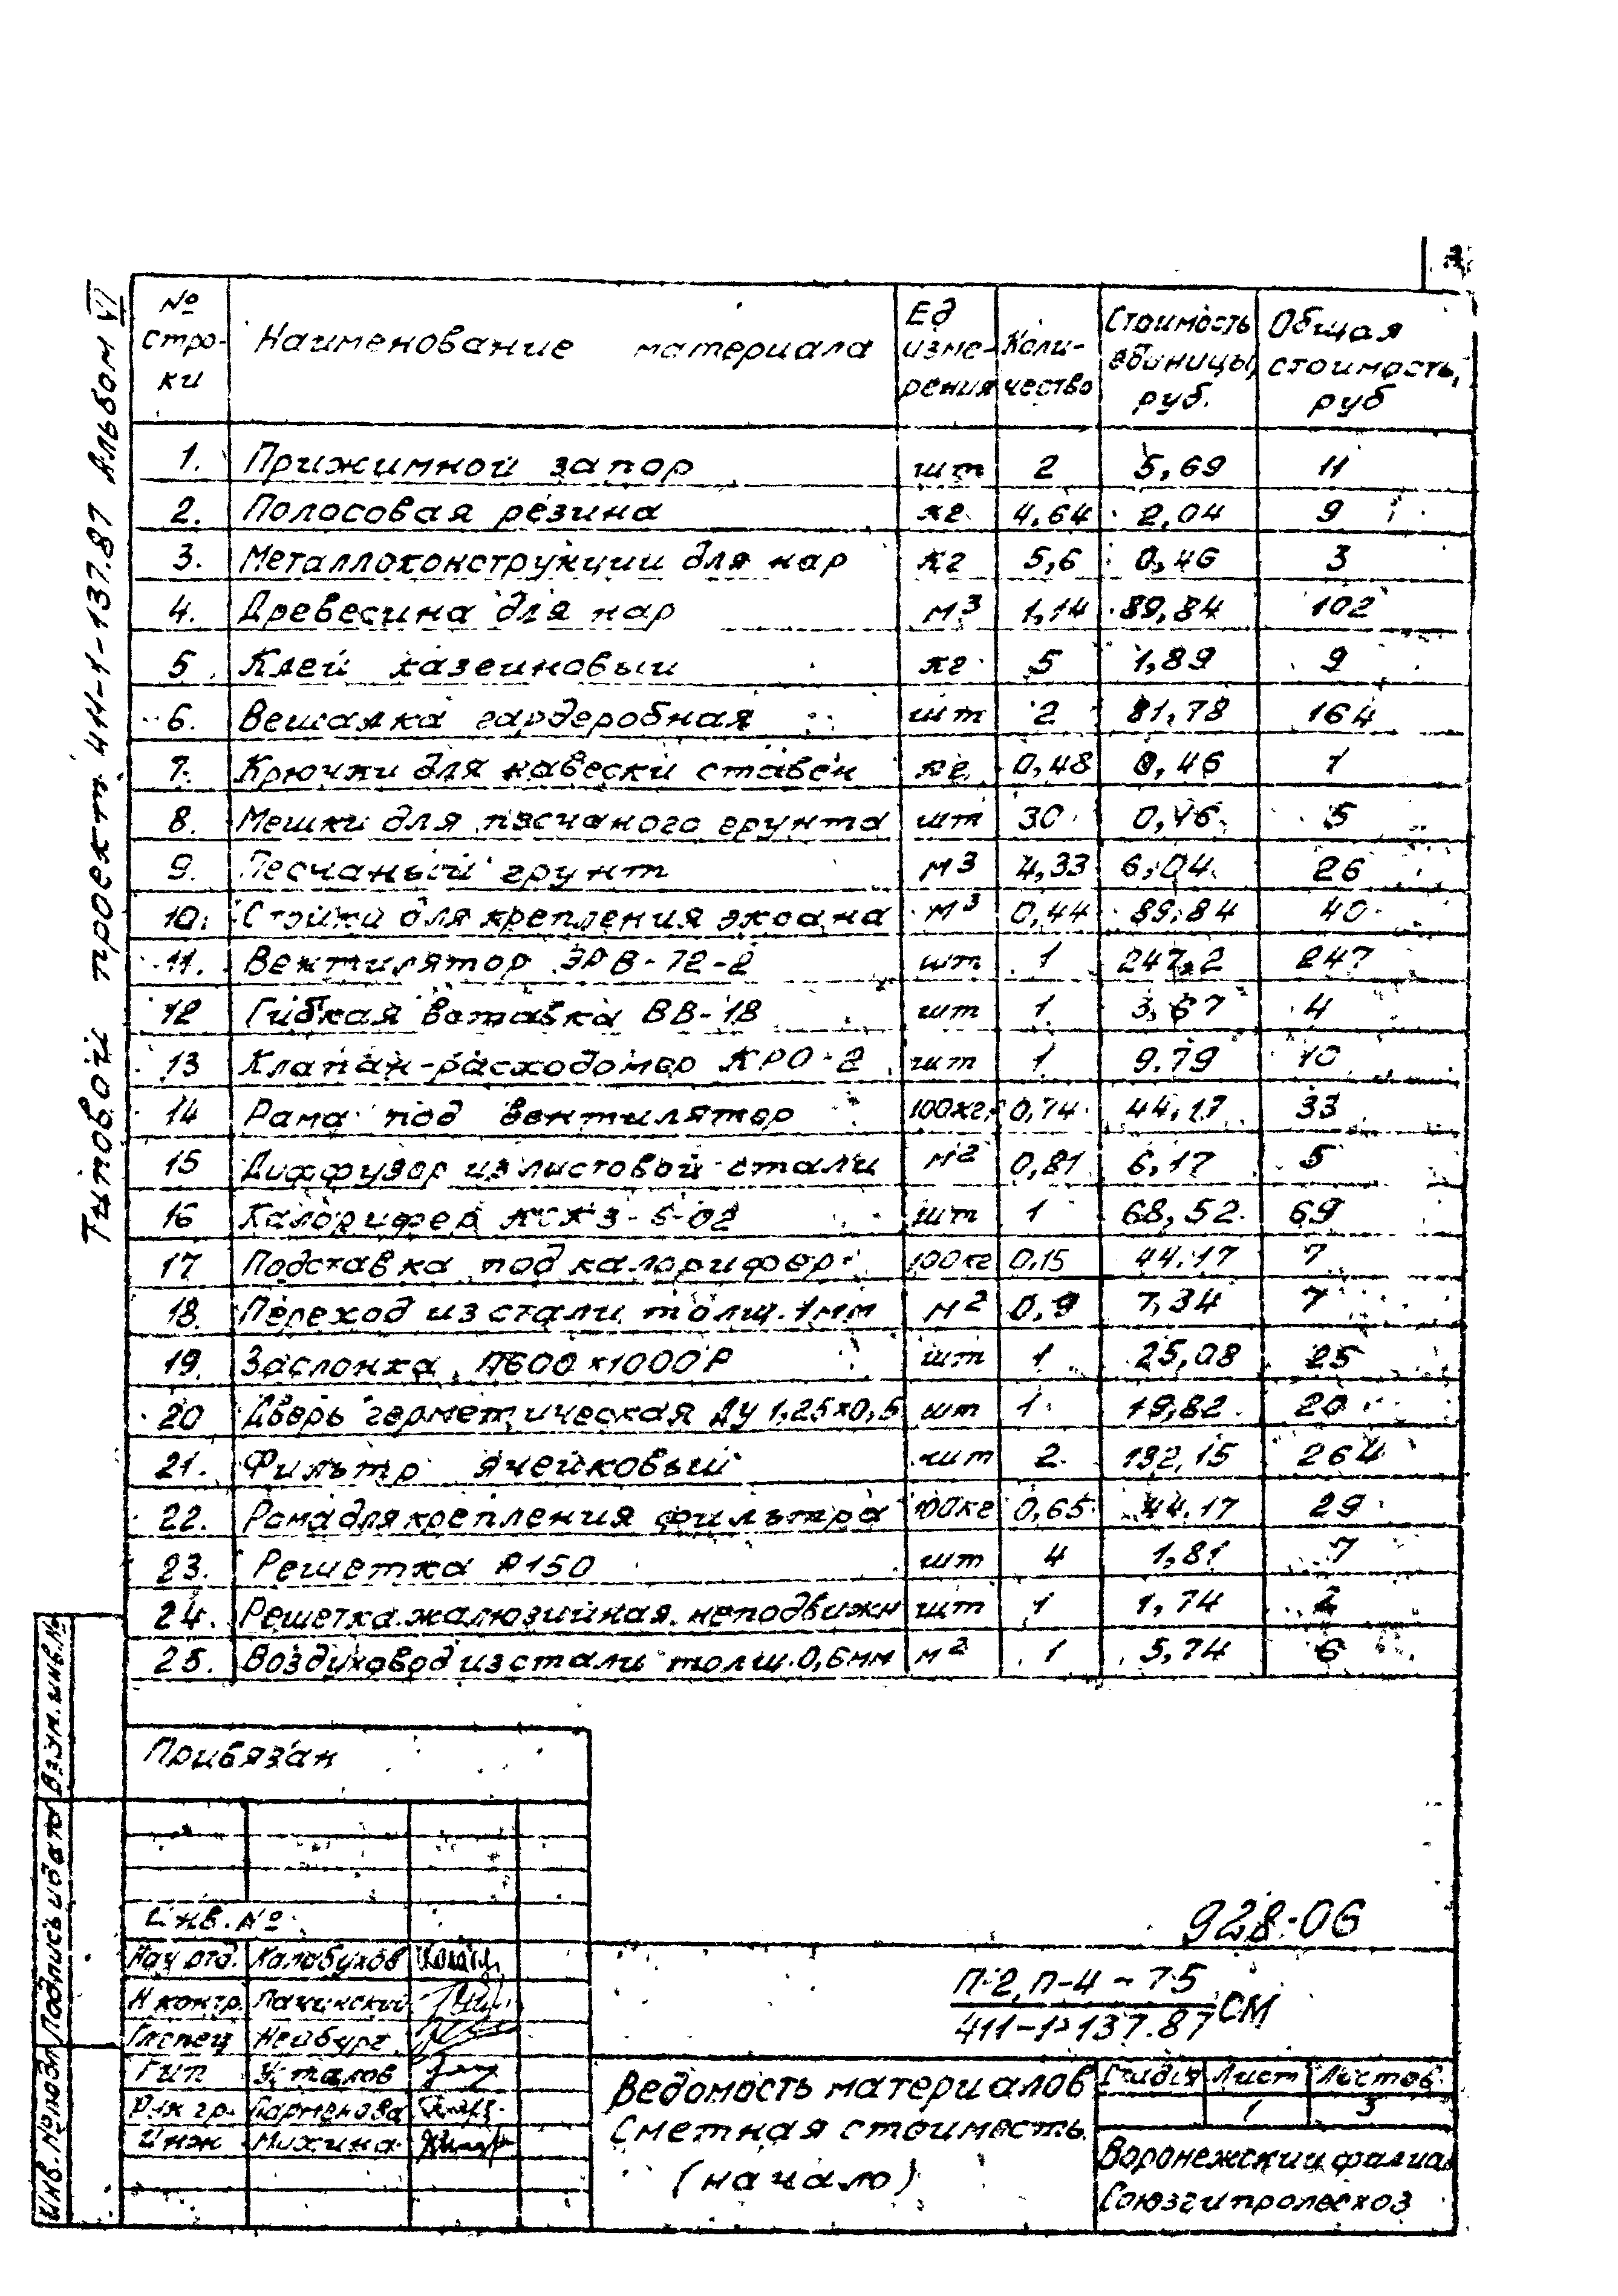 Типовой проект 411-1-137.87 Альбом VI
№ строки Наименование материала Ед измерения Количество Стоимость единицы, руб. Общая стоимость, руб
1. Прижимной запор шт 2 5,69 11
2. Полосовая резина кг 4,64 2,04 9
3. Металлоконструкции для нар кг 5,6 0,46 3
4. Древесина для нар м3 1,14 89,84 102
5 Клей казеиновый кг 5 1,89 9
6. Вешалка гардеробная шт 2 81,78 164
7. Крючки для навески ставен кг 0,48 0,46 1
8. Мешки для песчаного грунта шт 30 0,16 5
9. Песчаный грунт м3 4,33 6,04 26
10. Стойки для крепления экрана м3 0,44 89,84 40
11. Вентилятор ЭРВ-72-2 шт 1 247,2 247
12 Гибкая вставка ВВ-18 шт 1 3,67 4
13 Клапан-расходомер КРО-2 шт 1 9.79 10
14 Рама под вентилятор 100кг 0,74 44,17 33
15 Диффузор из листовой стали м2 0,81 6,17 5
16 Калорифер КСК3-6-02 шт 1 68,52 69
17 Подставка под калорифер 100кг 0,15 44.17 7
18. Переход из стали толщ. 1мм м2 0,9 7,34 7
19. Заслонка П600х1000Р шт 1 25,08 25
20 Дверь герметическая ДУ 1,25х0,5 шт 1 19,82 20
21. Фильтр ячейковый шт 2 132,15 264
22. Рама для крепления фильтра 100кг 0,65 44,17 29
23. Решетка Р150 шт 4 1,81 7
24. Решетка жалюзийная неподвижн шт 1 1,74 2
25. Воздуховод из стали толщ. 0,6мм м2 1 5,74 6
Привязан
Инв. №
928-06
Нач отд. Калабухов
Н контр. Лачинский
Гл спец Нейбург
Гип Усталов
Рук гр. Парменова
Инж Михина
П-2, П-4-75
411-1-137.87 СМ
Ведомость материалов
Сметная стоимость
(начало)
Стадия Лист Листов
1 3
Воронежский филиал
Союзгипролесхоз
Взам. инв. №
Подпись и дата
Инв. № подл